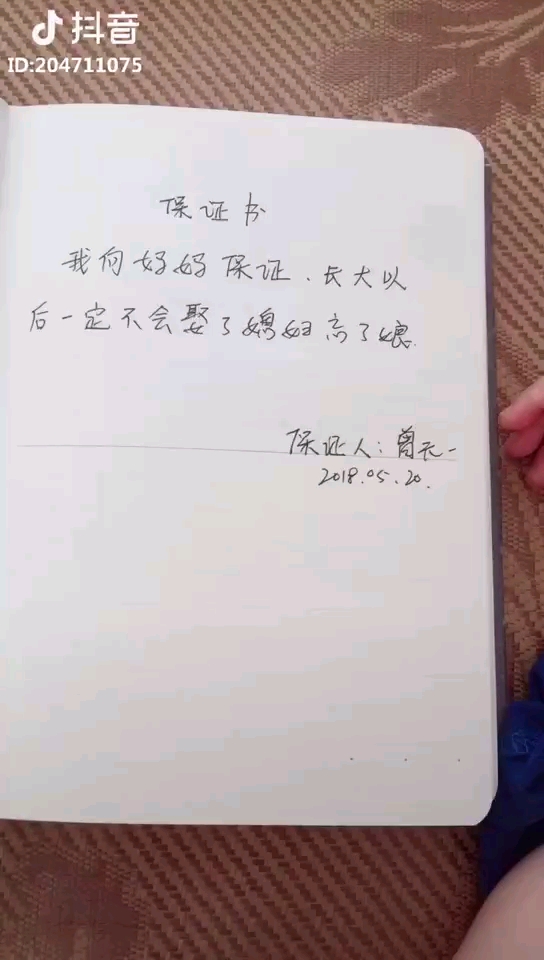 抖音
ID:204711075
保证书
我向妈妈保证.长大以
后一定不会娶了媳妇忘了娘.
保证人:曾天一
2018.05.20.